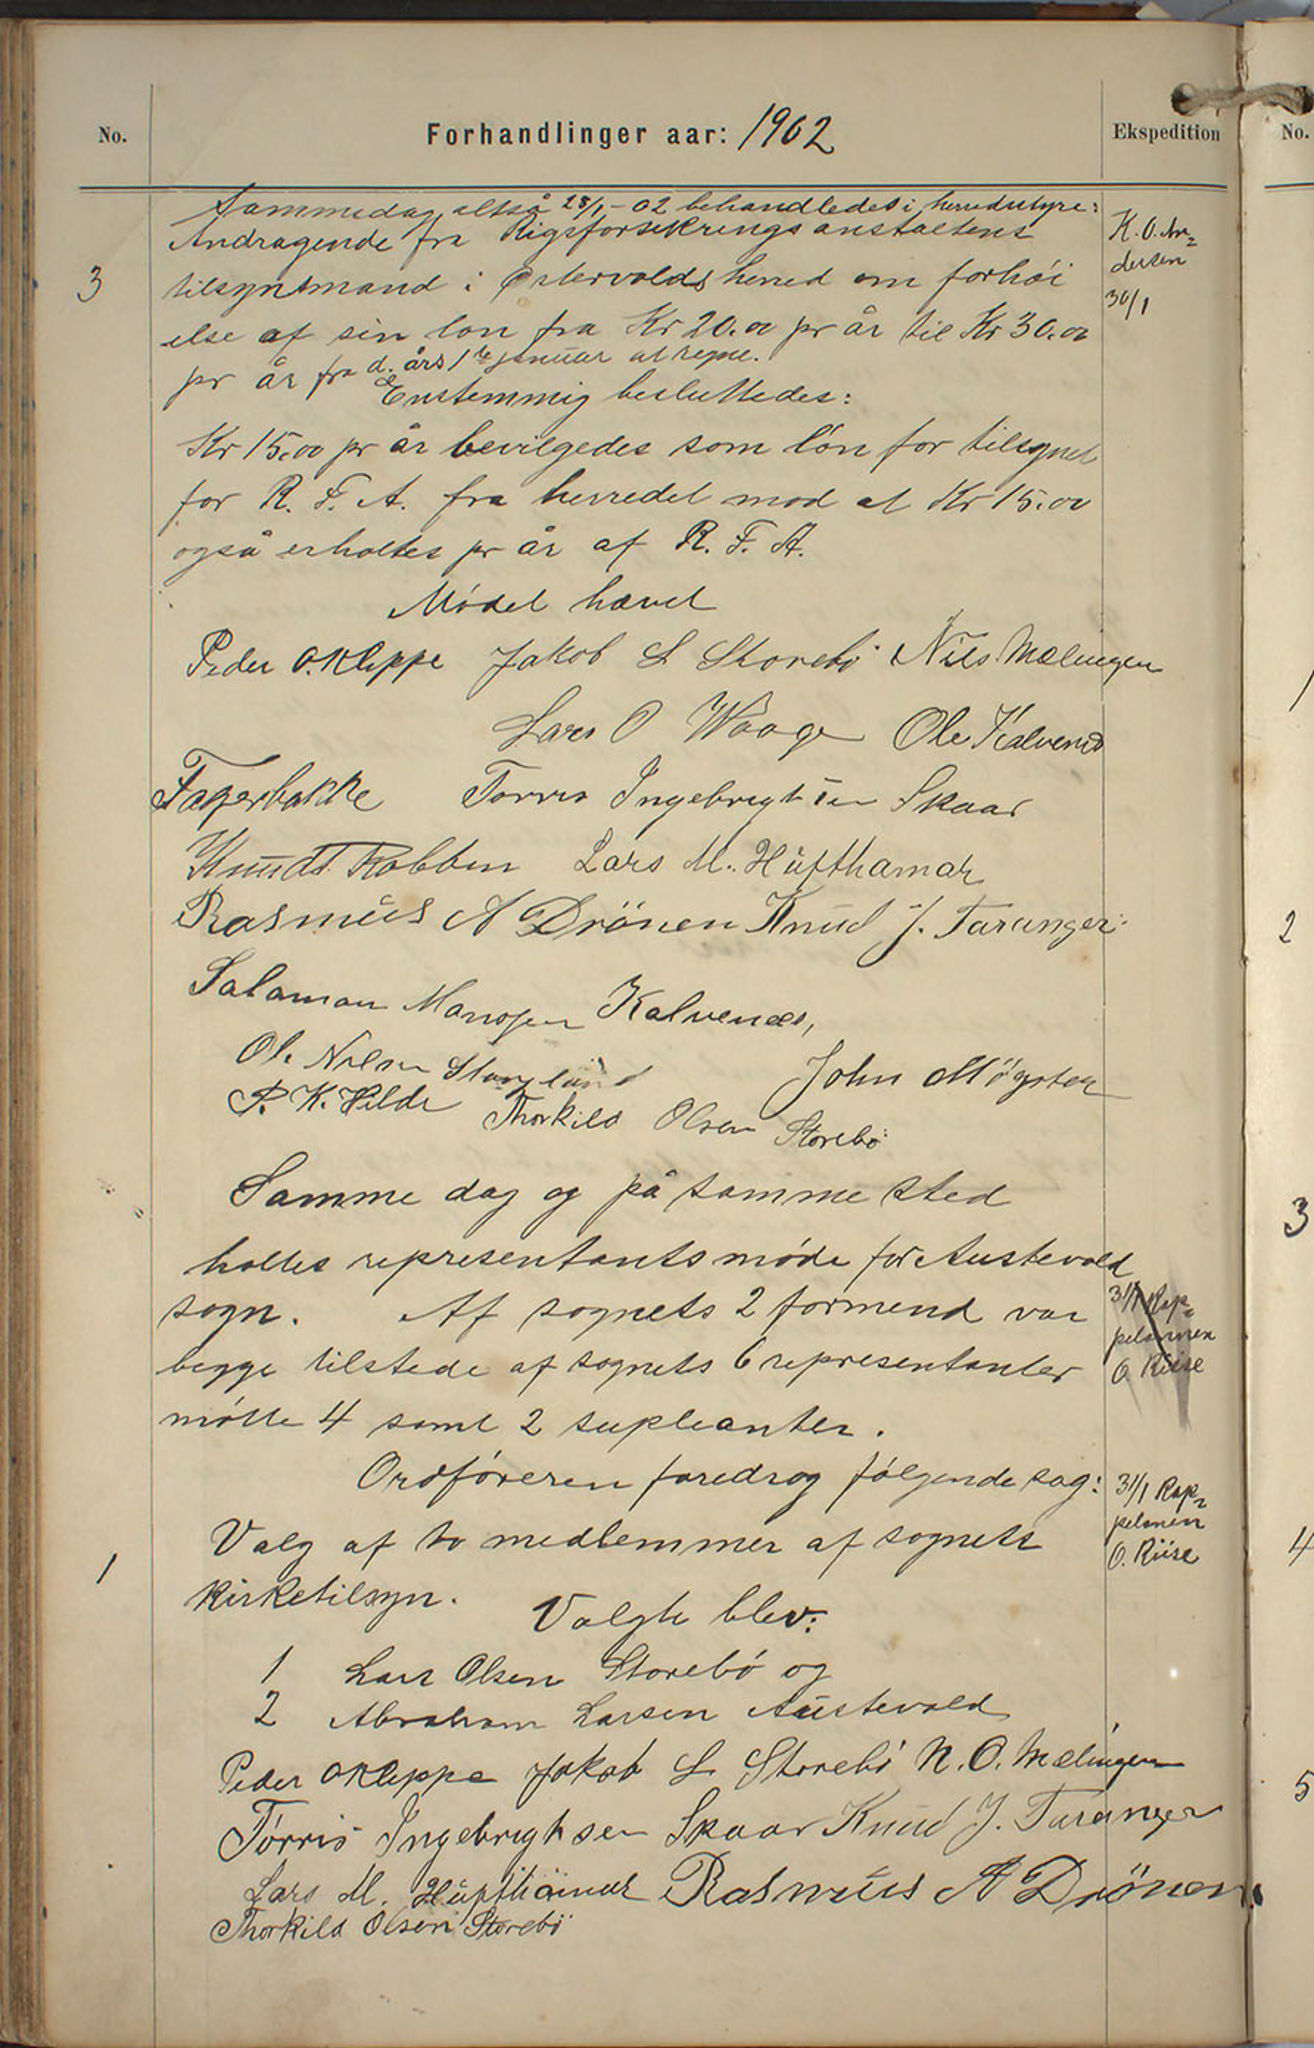 No.
Forhandlinger aar: 1902
Ekspedition
No.
Sammedag, altså 28/1-02 behandledes i herredstyre:
Andragende fra Rigsforsikringsanstaltens
K. O. An=
dersen
30/1
3
tilsynsmand i Østervolds herred om forhøi
else af sin løn fra Kr 20.00 pr år til Kr 30.00
pr år fra d. års 1ste januar at regne.
Enstemmig besluttedes:
Kr 15.00 pr år bevilgedes som løn for tilsynet
for R. F. A. fra herredet mod at Kr 15.00
også erholtes pr år af R. F. A.
Mødet hævet
Peder O. Kleppe Jakob L Storebö Nils Mælingen
Lars O Waage Ole Kalvenes
Fagerbakke Torris Ingebrigtsen Skaar
Knud Rabben Lars M. Hüfthamar
Rasmus A Drönen Knud J. Taranger
Salamon Kalvenæs,
Ole Nilsen John Mögster
P. K. Hilde Thorkild Olsen Storebö
Samme dag og på samme sted
holtes representantsmøde for Austevold
sogn. Af sognets 2 formend var
31/1 Rap=
pelanen
O. Riise
begge tilstede af sognets 6 representanter
møtte 4 samt 2 supleanter.
Ordføreren foredrog følgende sag:
31/1 Rap=
pelanen
O. Riise
1
Valg af to medlemmer af sognets
kirketilsyn.
Valgte blev:
1 Lars Olsen Storebø og
2 Abraham Larsen Austevold
Peder O Kleppe Jakob L Storebö N. O. Mælingen
Torris Ingebrigtsen Skaar Knud J. Taranger
Lars M. Hüfthamar Rasmus A Drönen
Thorkild Olsen Storebö
1
2
3
4
5